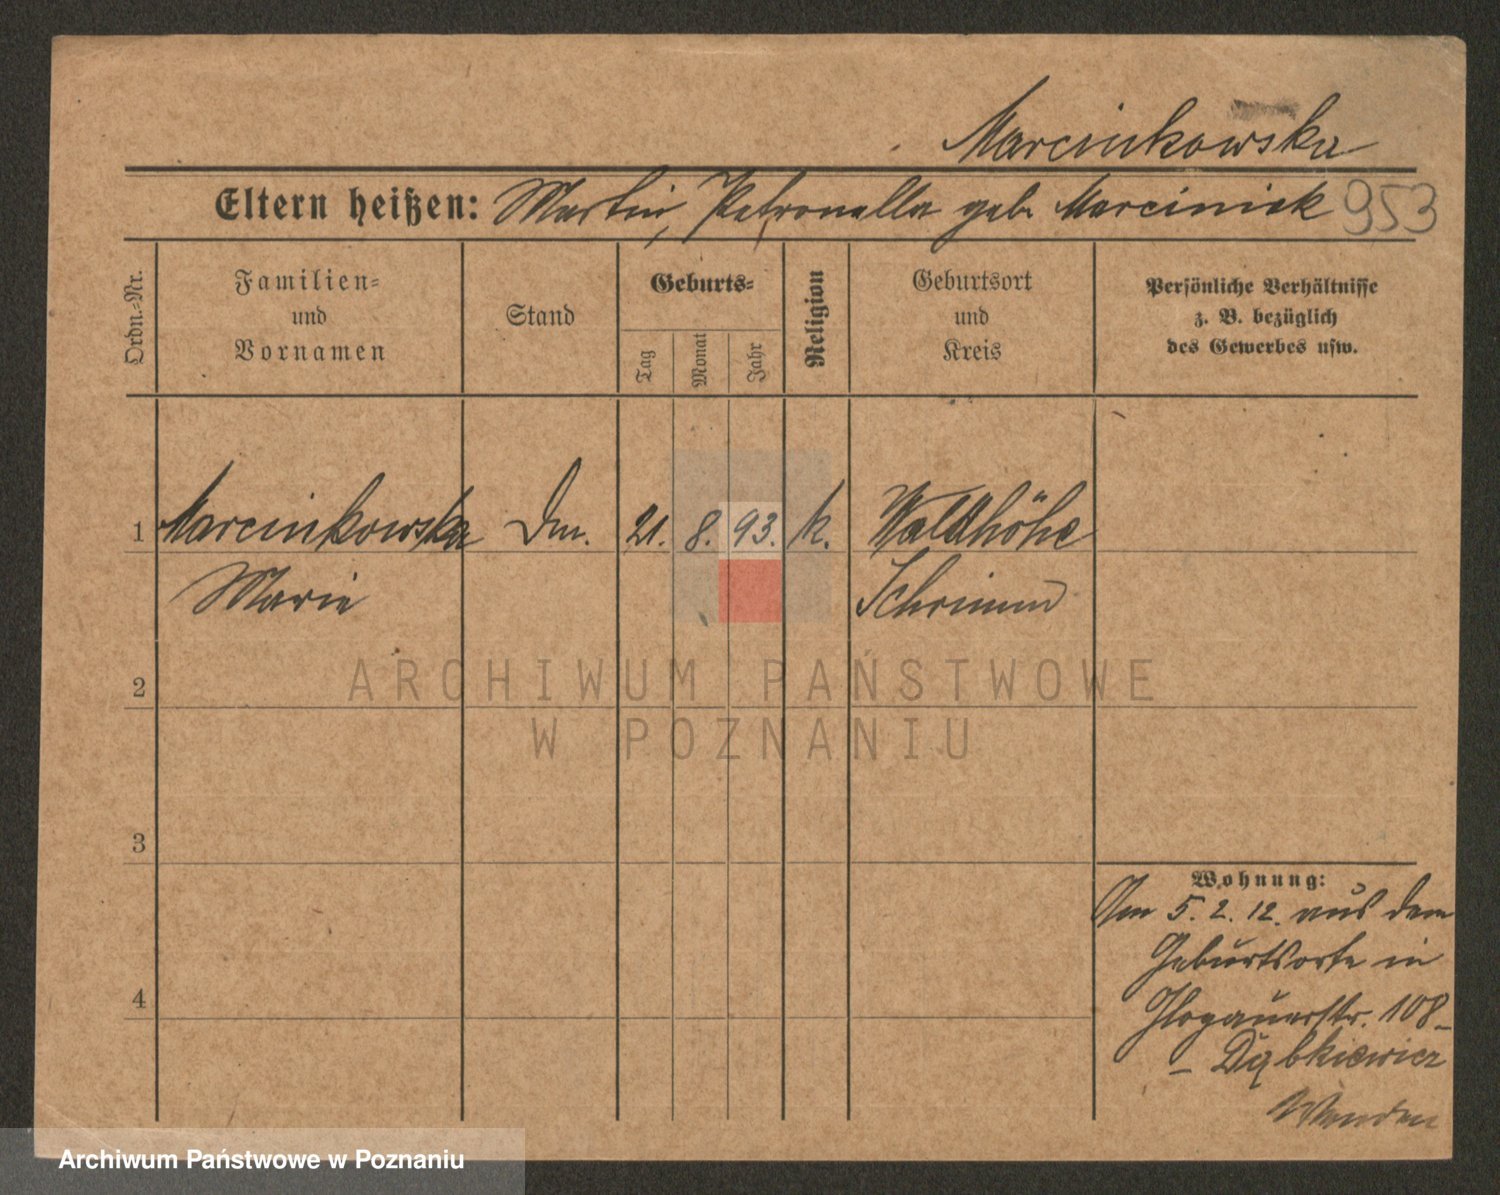 Marcinkowska
Eltern heißen: Martin, Petronella geb. Marciniak 953
Ordn.-Nr.
Familien-
und
Vornamen
Stand
Geburts-
Tag
Monat
Jahr
Religion
Geburtsort
und
Kreis
Persönliche Verhältnisse
z. B. bezüglich
des Gewerbes usw.
1 Marcinkowska Dm. 21. 8. 93. k. Waldhöhe
Marie Schrimm
2
ARCHIWUM PAŃSTWOWE
W POZNANIU
3
Wohnung:
Am 5. 2. 12. aus dem
Geburtsorte in
4
Glogauerstr. 108-
- Dąbkiewicz
Wenden
Archiwum Państwowe w Poznaniu